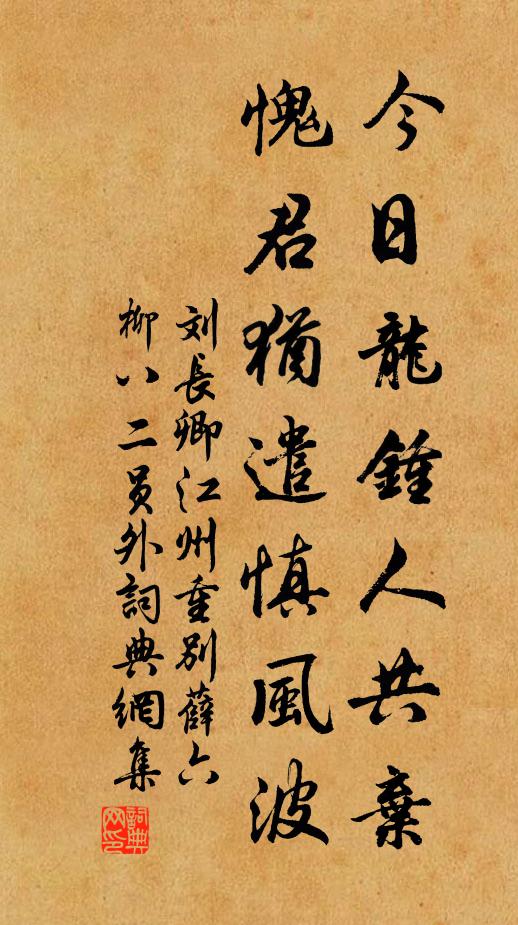 今日龍鍾人共棄
愧君猶遣慎風波
刘長卿江州重別薛六
柳八二員外詞典網集
詞典
网印